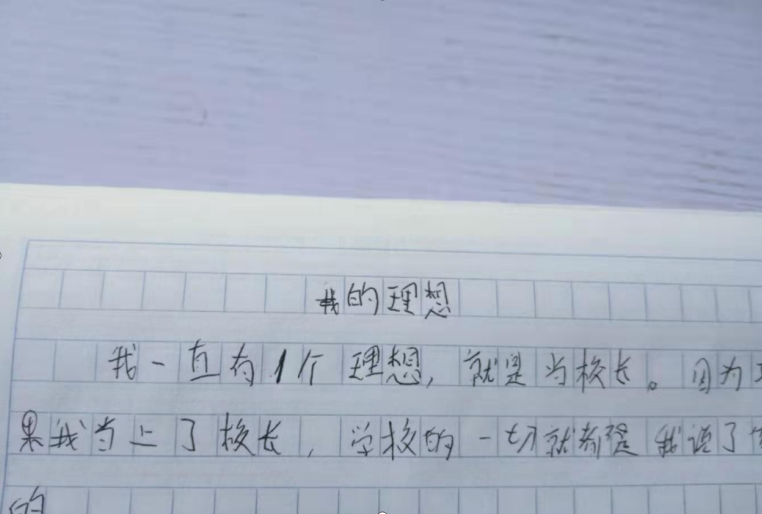 我的理想
我一直有1个理想，就是当校长。因为
果我当上了校长，学校的一切就都是我说了
的